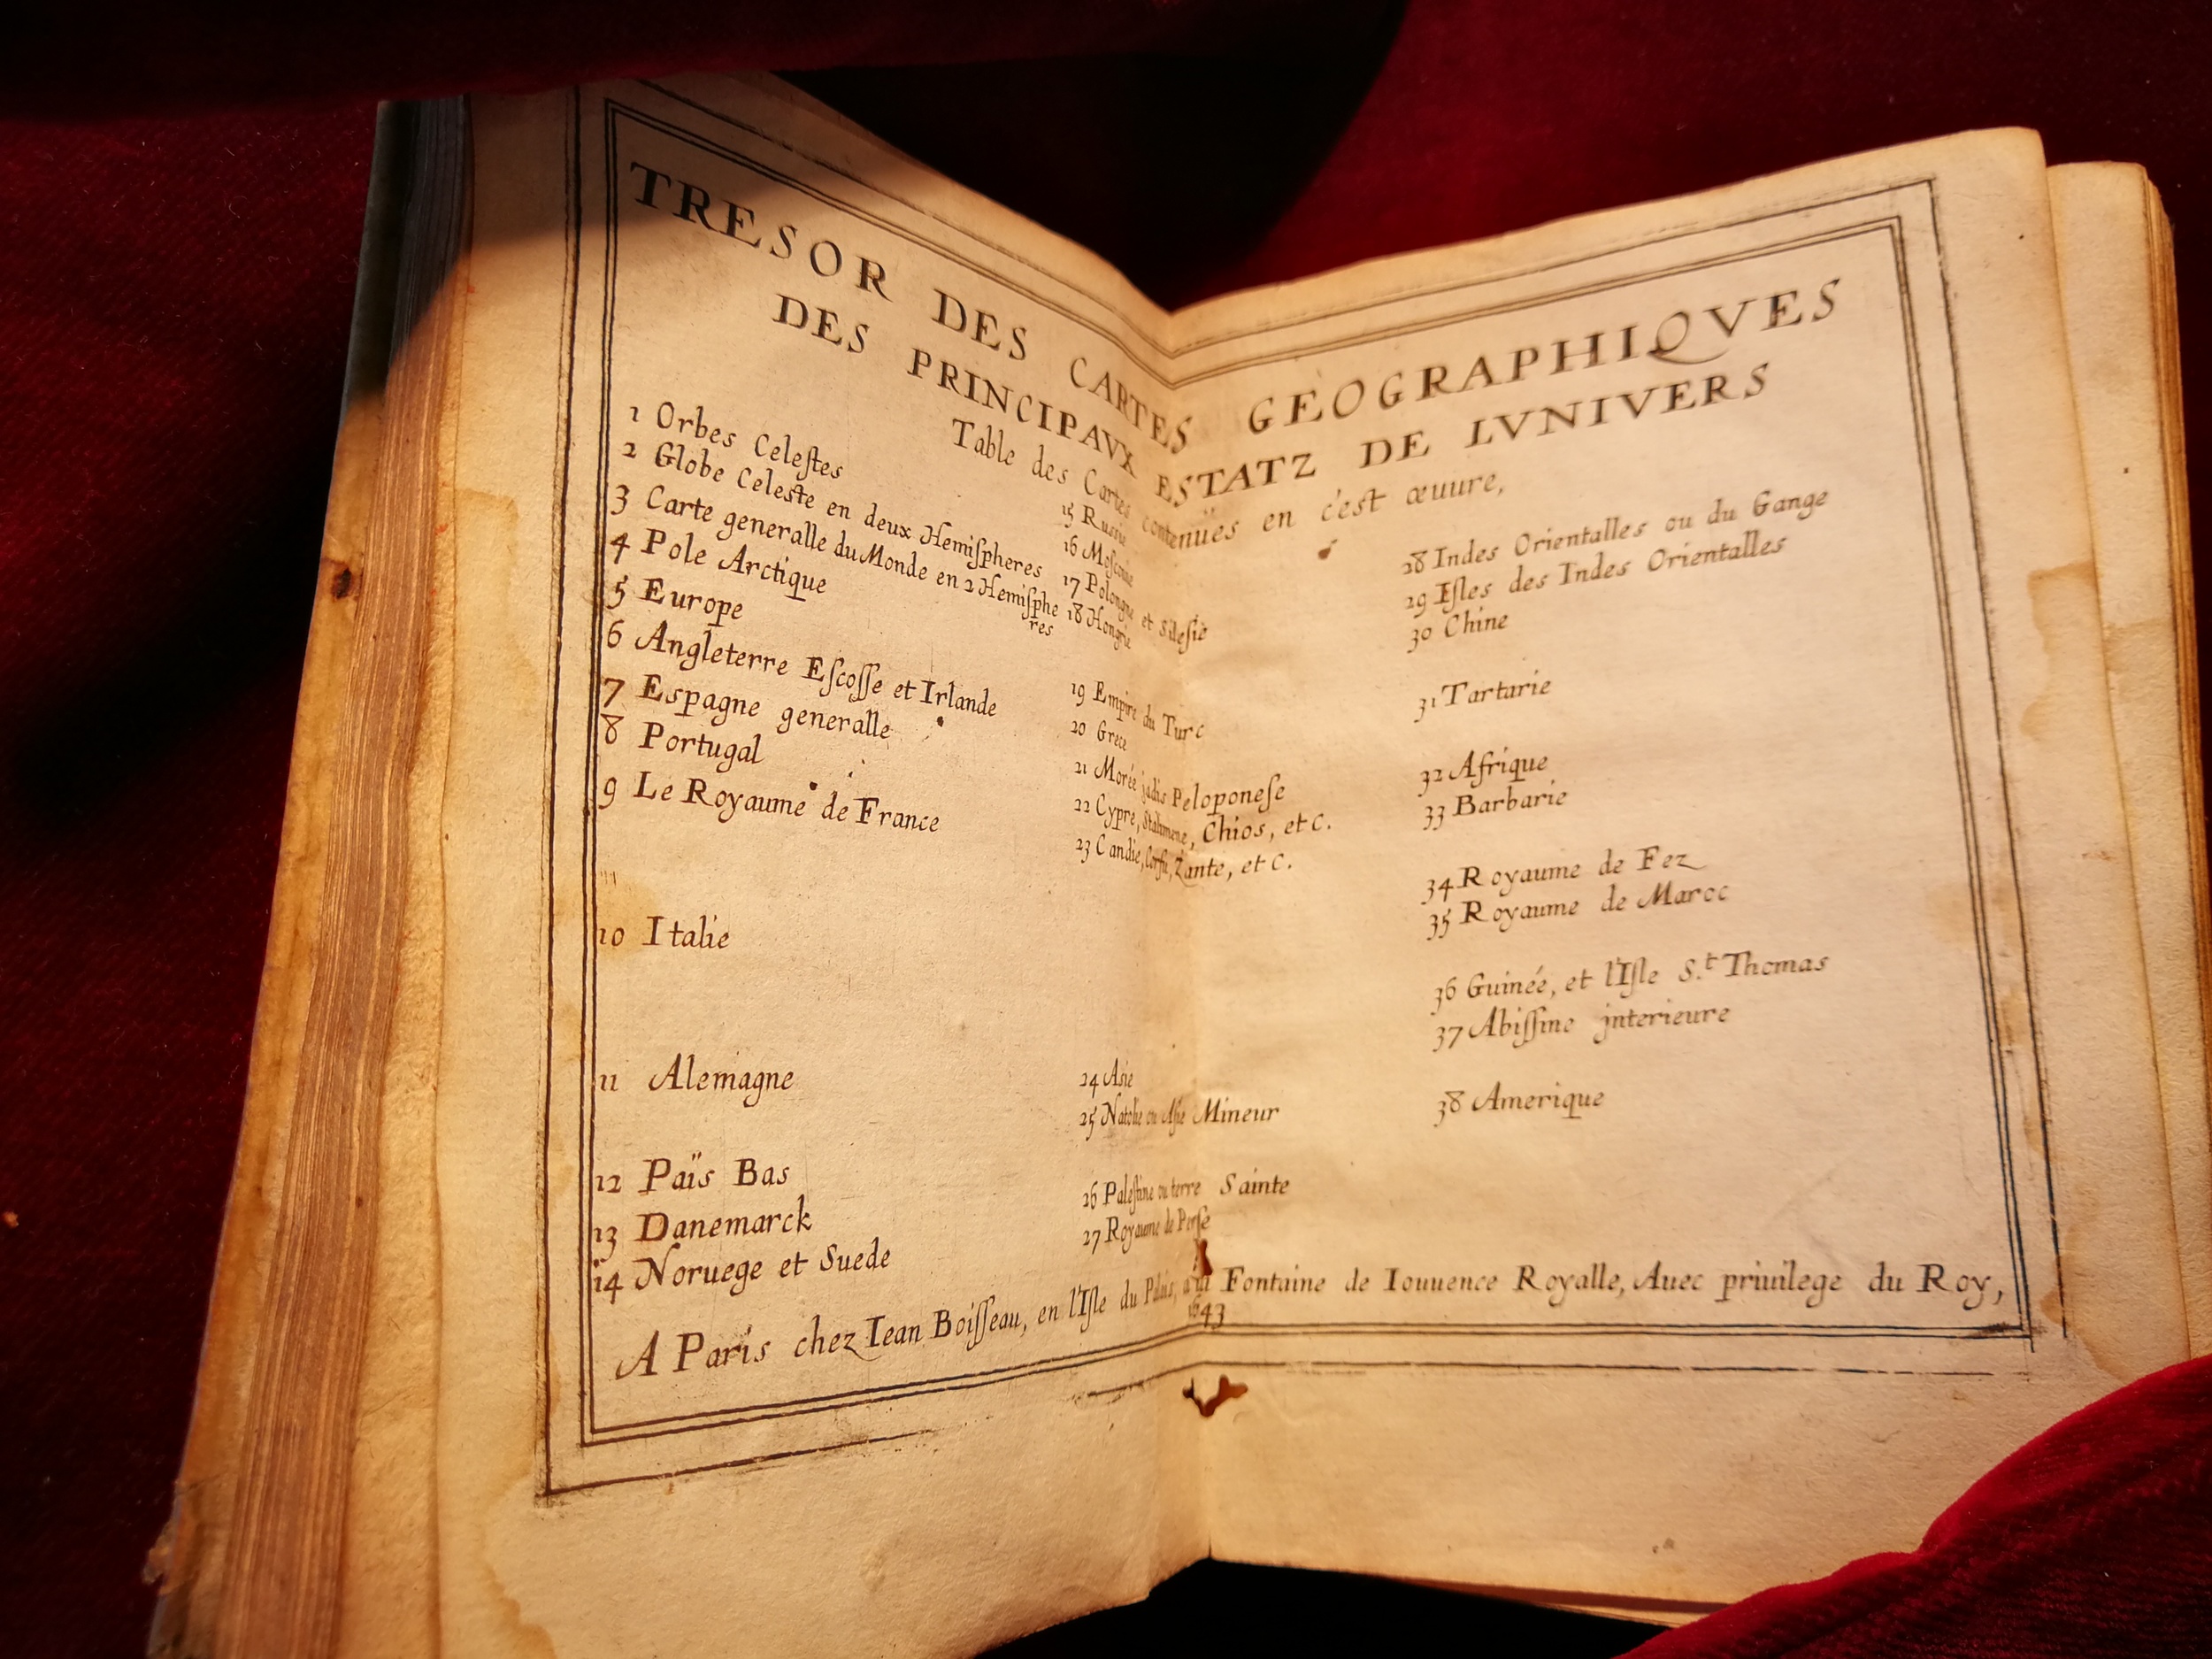 TRESOR DES CARTES GEOGRAPHIQVES
DES PRINCIPAVX ESTATZ DE LVNIVERS
Table des Cartes contenües en c'est œuure,
1 Orbes Celeſtes
2 Globe Celeste en deux Hemiſpheres
3 Carte generalle du Monde en 2 Hemiſphe
res
4 Pole Arctique
5 Europe
6 Angleterre Eſcoſſe et Irlande
7 Espagne generalle
8 Portugal
9 Le Royaume de France
10 Italie
11 Alemagne
12 Païs Bas
13 Danemarck
14 Noruege et Suede
15 Rusie
16 Moſcouie
17 Polongne et Sileſie
18 Hongrie
19 Empire du Turc
20 Grece
21 Morée jadis Peloponeſe
22 Cypre, Stalimene, Chios, et c.
23 Candie, Corfu, Zante, et c.
24 Asie
25 Natolie ou Aſie Mineur
26 Paleſtine ou terre Sainte
27 Royaume de Perſe
28 Indes Orientalles ou du Gange
29 Iſles des Indes Orientalles
30 Chine
31 Tartarie
32 Afrique
33 Barbarie
34 Royaume de Fez
35 Royaume de Maroc
36 Guinée, et l'Iſle S.t Thomas
37 Abiſſine jnterieure
38 Amerique
A Paris chez Iean Boiſſeau, en l'Iſle du Palais, a la Fontaine de Iouuence Royalle, Auec priuilege du Roy,
1643